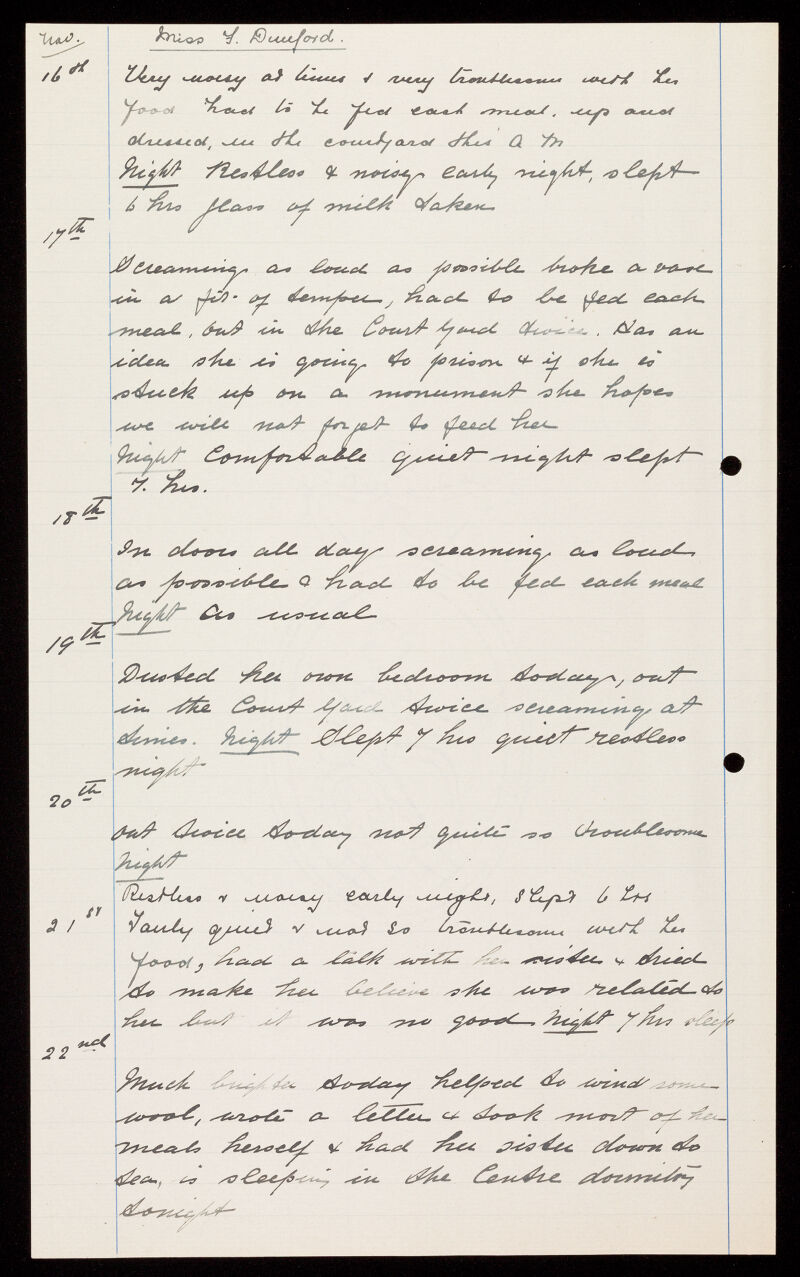 Nov. Miss F. Dunford.
16th Very noisy at times & very troublesome with her
food had to be fed each meal. up and
dressed, in the courtyard this A M
Night Restless & noisy early night, slept
6 hrs glass of milk taken
17th
Screaming as loud as possible broke a vase
in a fit of temper, had to be fed each
meal, out in the Court Yard twice. Has an
idea she is going to prison & if she is
stuck up on a monument she hopes
we will not forget to feed her
Night Comfortable quiet night slept
7. hrs.
18th
In doors all day screaming as loud
as possible & had to be fed each meal
Night As usual
19th
Dusted her own bedroom today, out
in the Court Yard twice screaming at
times. Night Slept 7 hrs quiet restless
night
20th
out twice today not quite so troublesome
Night
Restless & noisy early night, slept 6 hrs
21st Fairly quiet & not so troublesome with her
food, had a talk with her sister & tried
to make her believe she was related to
her but it was no good Night 7 hrs sleep
22nd
Much brighter today helped to wind some
wool, wrote a letter & took most of her
meals herself & had her sister down to
tea, is sleeping in the Centre dormitory
tonight